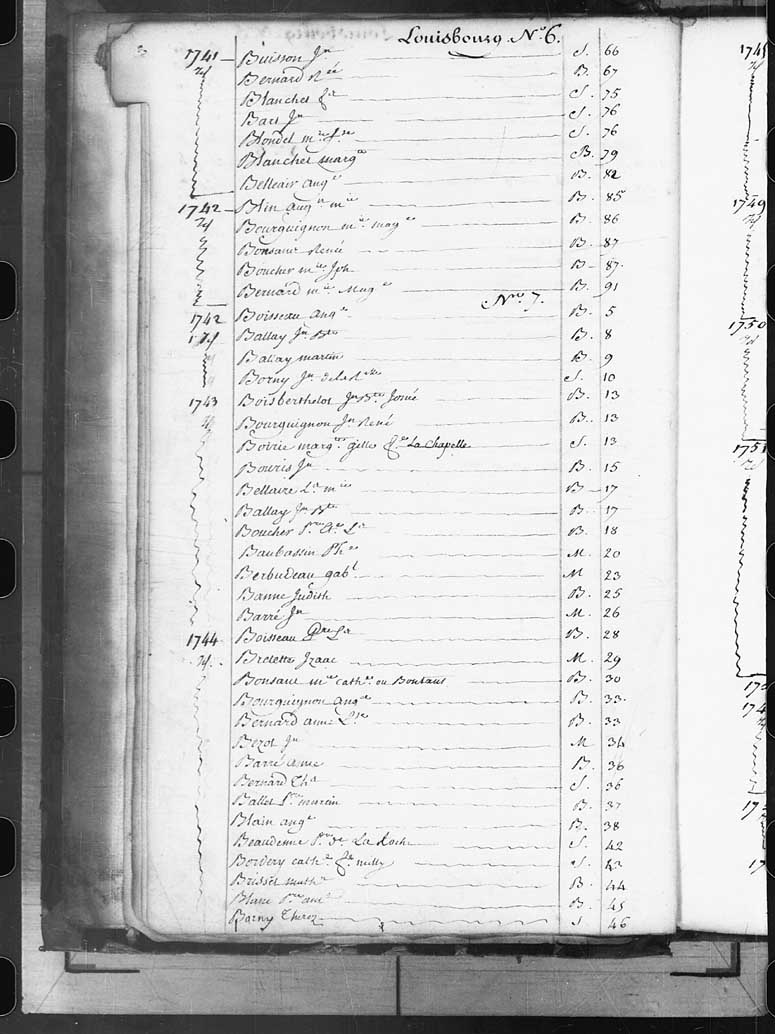 Louisbourg. N.º 6.
1741 Buisson Jn S. 66
Id Bernard Réé B. 67
Blanchet fr S. 75
Bart Jn S. 76
Blondel mie fse S. 76
Blanchet margte B. 79
Belleair angue B. 82
1742 Blin angue mie B. 85
Id Bourguignon mie B. 86
Bonsaut Renée B. 87
Boucher mie Jph B. 87.
Bernard mie B. 91
Nro 7.
1742 Boisseau angue B. 5
Id Ballay Jn Bte B. 8
Ballay martin B. 9
Borny Jn S. 10
1743 Boisberthelot Jn Bte Josué B. 13
Id Bourguignon Jn René B. 13
Boirie margte gilles fe La Chapelle S. 13
Bouris Jn B. 15
Bellaire Ls mie B. 17
Ballay Jn Bte B. 17
Boucher B. 18
Baubassin M. 20
Berbudeau gabl M 23
Banne Judith B. 25
Barré Jn M. 26
1744 Boisseau B. 28
Id. Bretette Izaac M. 29
Bonsaut mie cathne ou Bontaut B. 30
Bourguignon angue B. 33.
Bernard anne B. 33
Bezot Jn M 34
Barré anne B. 36
Bernard Ths S. 36
Ballet B. 37
Blain angue B. 38
Beaudenne Pre de La Roche S. 42
Bordery cathne fe S. 43
Brisset B. 44
Blanc Pre B. 45
Barny S 46
1749
Id
1750
Id
1751
Id